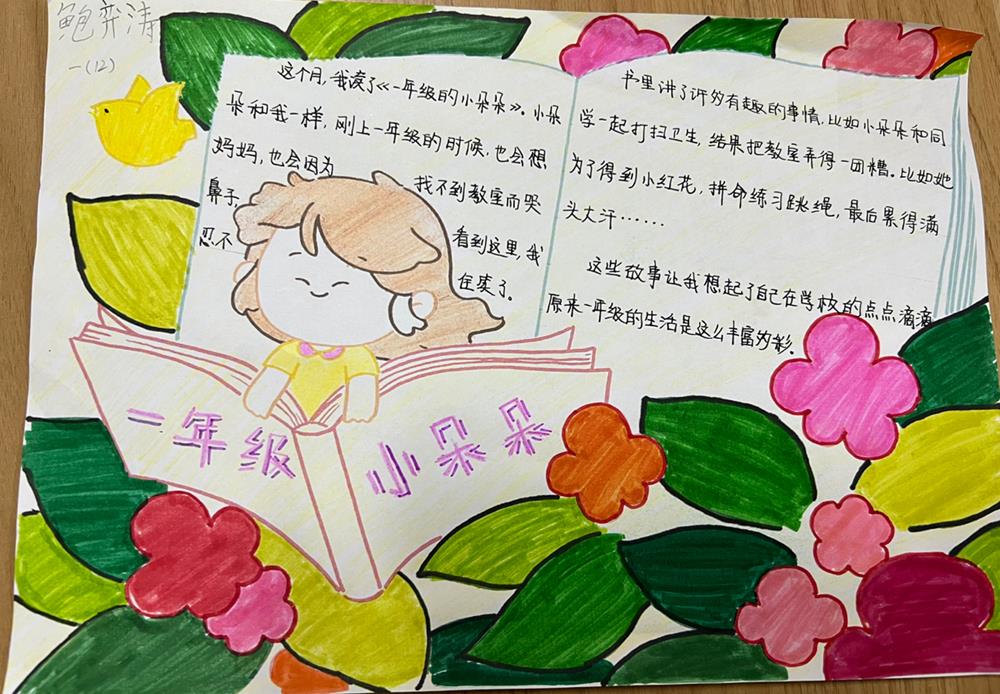 鲍弈涛
一(12)
这个月，我读了《一年级的小朵朵》。小朵
朵和我一样，刚上一年级的时候，也会想
妈妈，也会因为
鼻子， 找不到教室而哭
看到这里，我
忍不 住笑了。
书里讲了许多有趣的事情，比如小朵朵和同
学一起打扫卫生，结果把教室弄得一团糟。比如她
为了得到小红花，拼命练习跳绳，最后累得满
头大汗……
这些故事让我想起了自己在学校的点点滴滴
原来一年级的生活是这么丰富多彩。
一年级 小朵朵